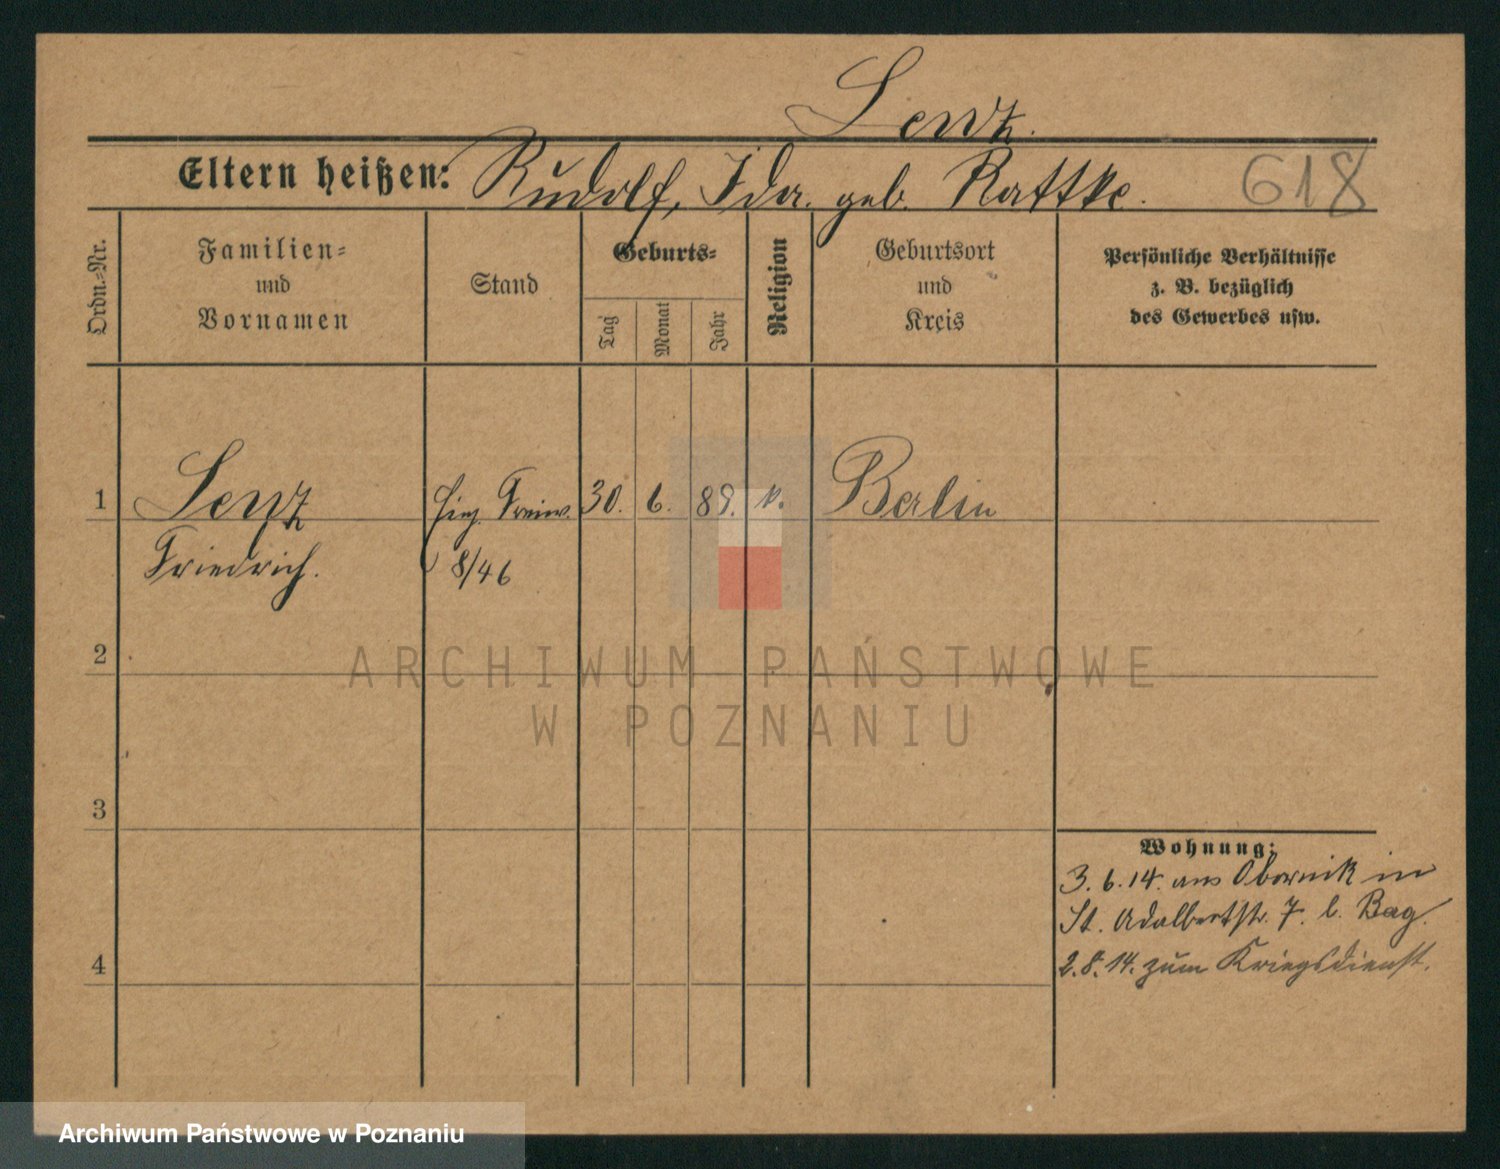 Lenz.
Eltern heißen: Rudolf, Ida. geb. Rattke.
618
Ordn.-Nr.
Familien-
und
Vornamen
Stand
Geburts-
Tag
Monat
Jahr
Religion
Geburtsort
und
Kreis
Persönliche Verhältnisse
z. B. bezüglich
des Gewerbes usw.
1 Lenz Freiw. 30. 6. 89. k. Berlin
Friedrich. 8/46
2
3
4
Wohnung:
3. 6. 14. aus Obornik in
St. Adalbertstr. 7. b. Bag.
2. 8. 14. zum Kriegsdienst.
ARCHIWUM PAŃSTWOWE
W POZNANIU
Archiwum Państwowe w Poznaniu